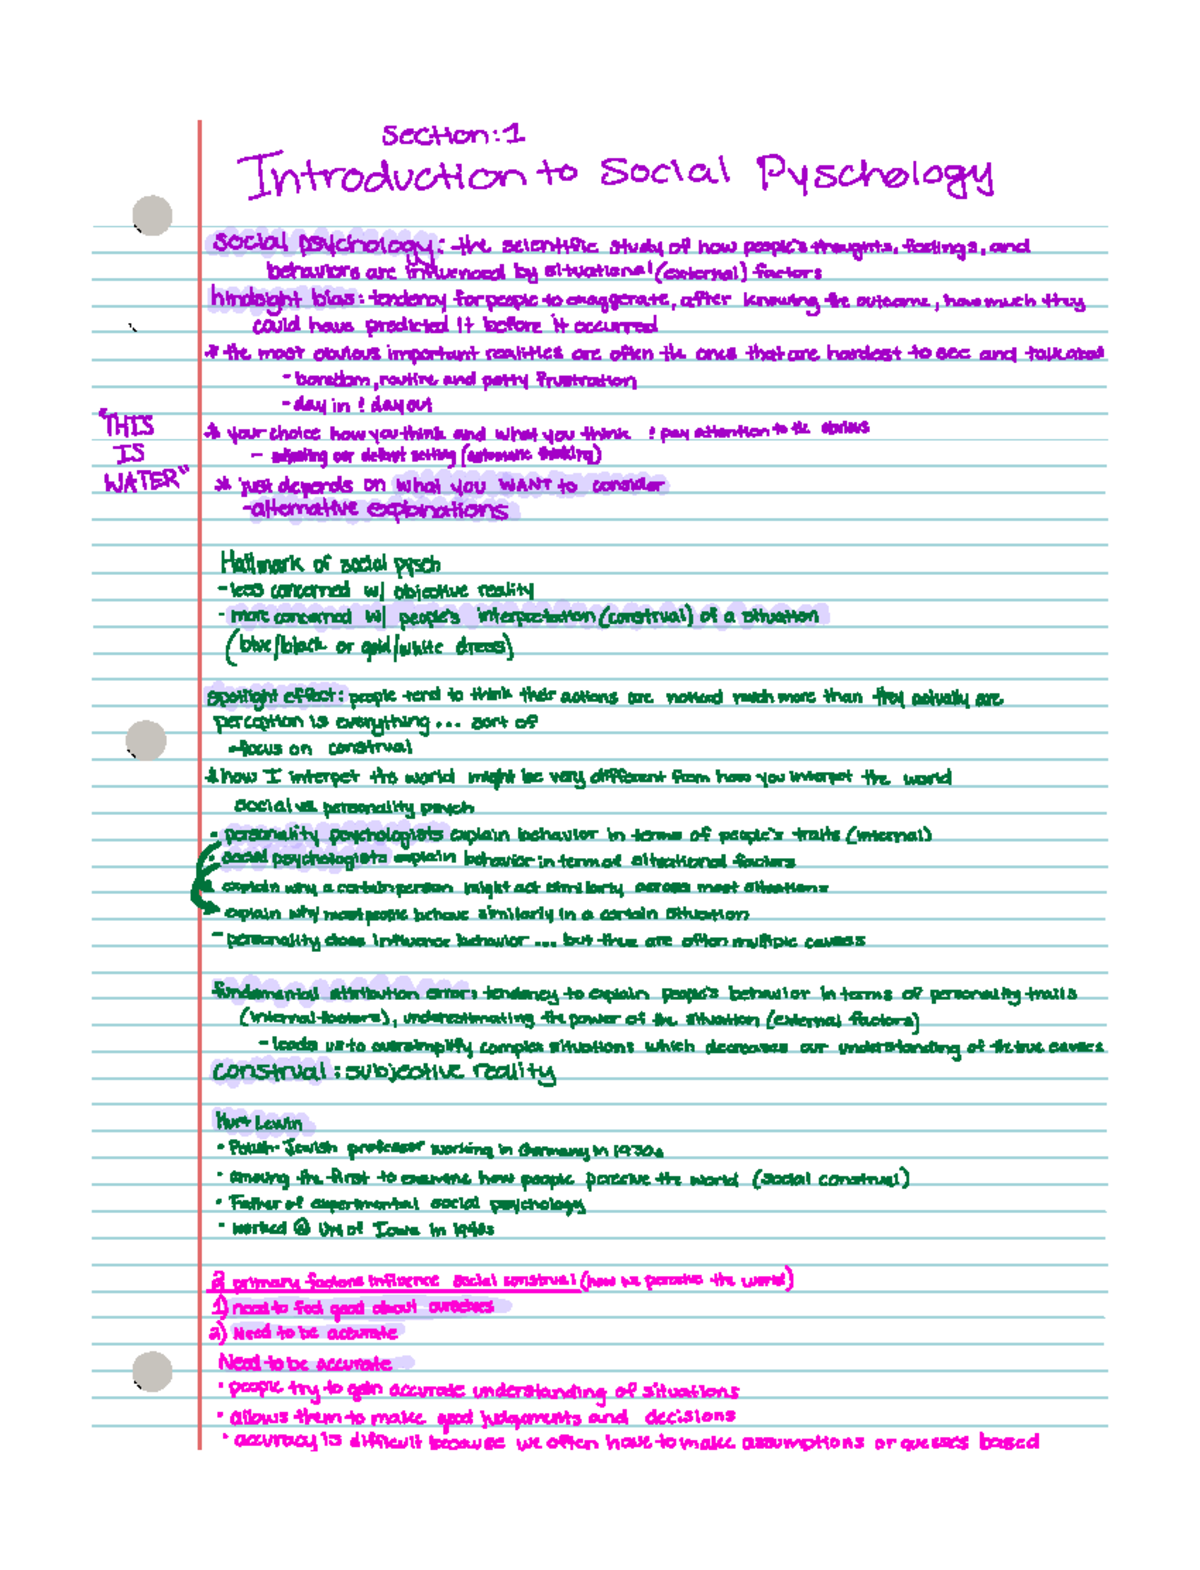 Section: 1
Introduction to Social Pyschology
social psychology: the scientific study of how people's thoughts, feelings, and
behaviors are influenced by situational (external) factors
hindsight bias: tendency for people to exaggerate, after knowing the outcome, how much they
could have predicted it before it occurred
* the most obvious important realities are often the ones that are hardest to see and talk about
- boredom, routine and petty frustration
- day in & day out
"THIS
IS
WATER"
* your choice how you think and what you think & pay attention to the obvious
- adjusting our default setting (automatic thinking)
* just depends on what you WANT to consider
- alternative explanations
Hallmark of social pysch
- less concerned w/ objective reality
- more concerned w/ people's interpretation (construal) of a situation
(blue/black or gold/white dress)
spotlight effect: people tend to think their actions are noticed much more than they actually are
perception is everything... sort of
- focus on construal
* how I interpet the world might be very different from how you interpet the world
social vs. personality psych
· personality psychologists explain behavior in terms of people's traits (internal)
· social psychologists explain behavior in term of situational factors
explain why a certain person might act similarly across most situations
explain why most people behave similarly in a certain situation
- personality does influence behavior... but there are often multiple causes
fundamental attribution error: tendency to explain people's behavior in terms of personality traits
(internal factors), underestimating the power of the situation (external factors)
- leads us to oversimplify complex situations which decreases our understanding of the true causes
construal: subjective reality
Kurt Lewin
· Polish-Jewish professor working in Germany in 1930s
· among the first to examine how people perceive the world (social construal)
· Father of experimental social psychology
· worked @ Uni of Iowa in 1940s
2 primary factors influence social construal (how we perceive the world)
1) need to feel good about ourselves
2) Need to be accurate
Need to be accurate
· people try to gain accurate understanding of situations
· allows them to make good judgements and decisions
· accuracy is difficult because we often have to make assumptions or guesses based